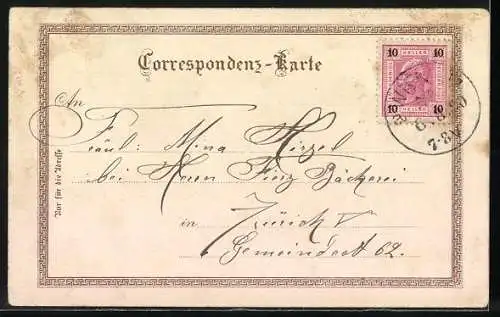 Correspondenz-Karte
10 10
HELLER
10 10
An
Fräul: Mina Hirzel
bei Herrn Finz Bäckerei
in Zürich V
Gemeindestr 62.
Nur für die Adresse